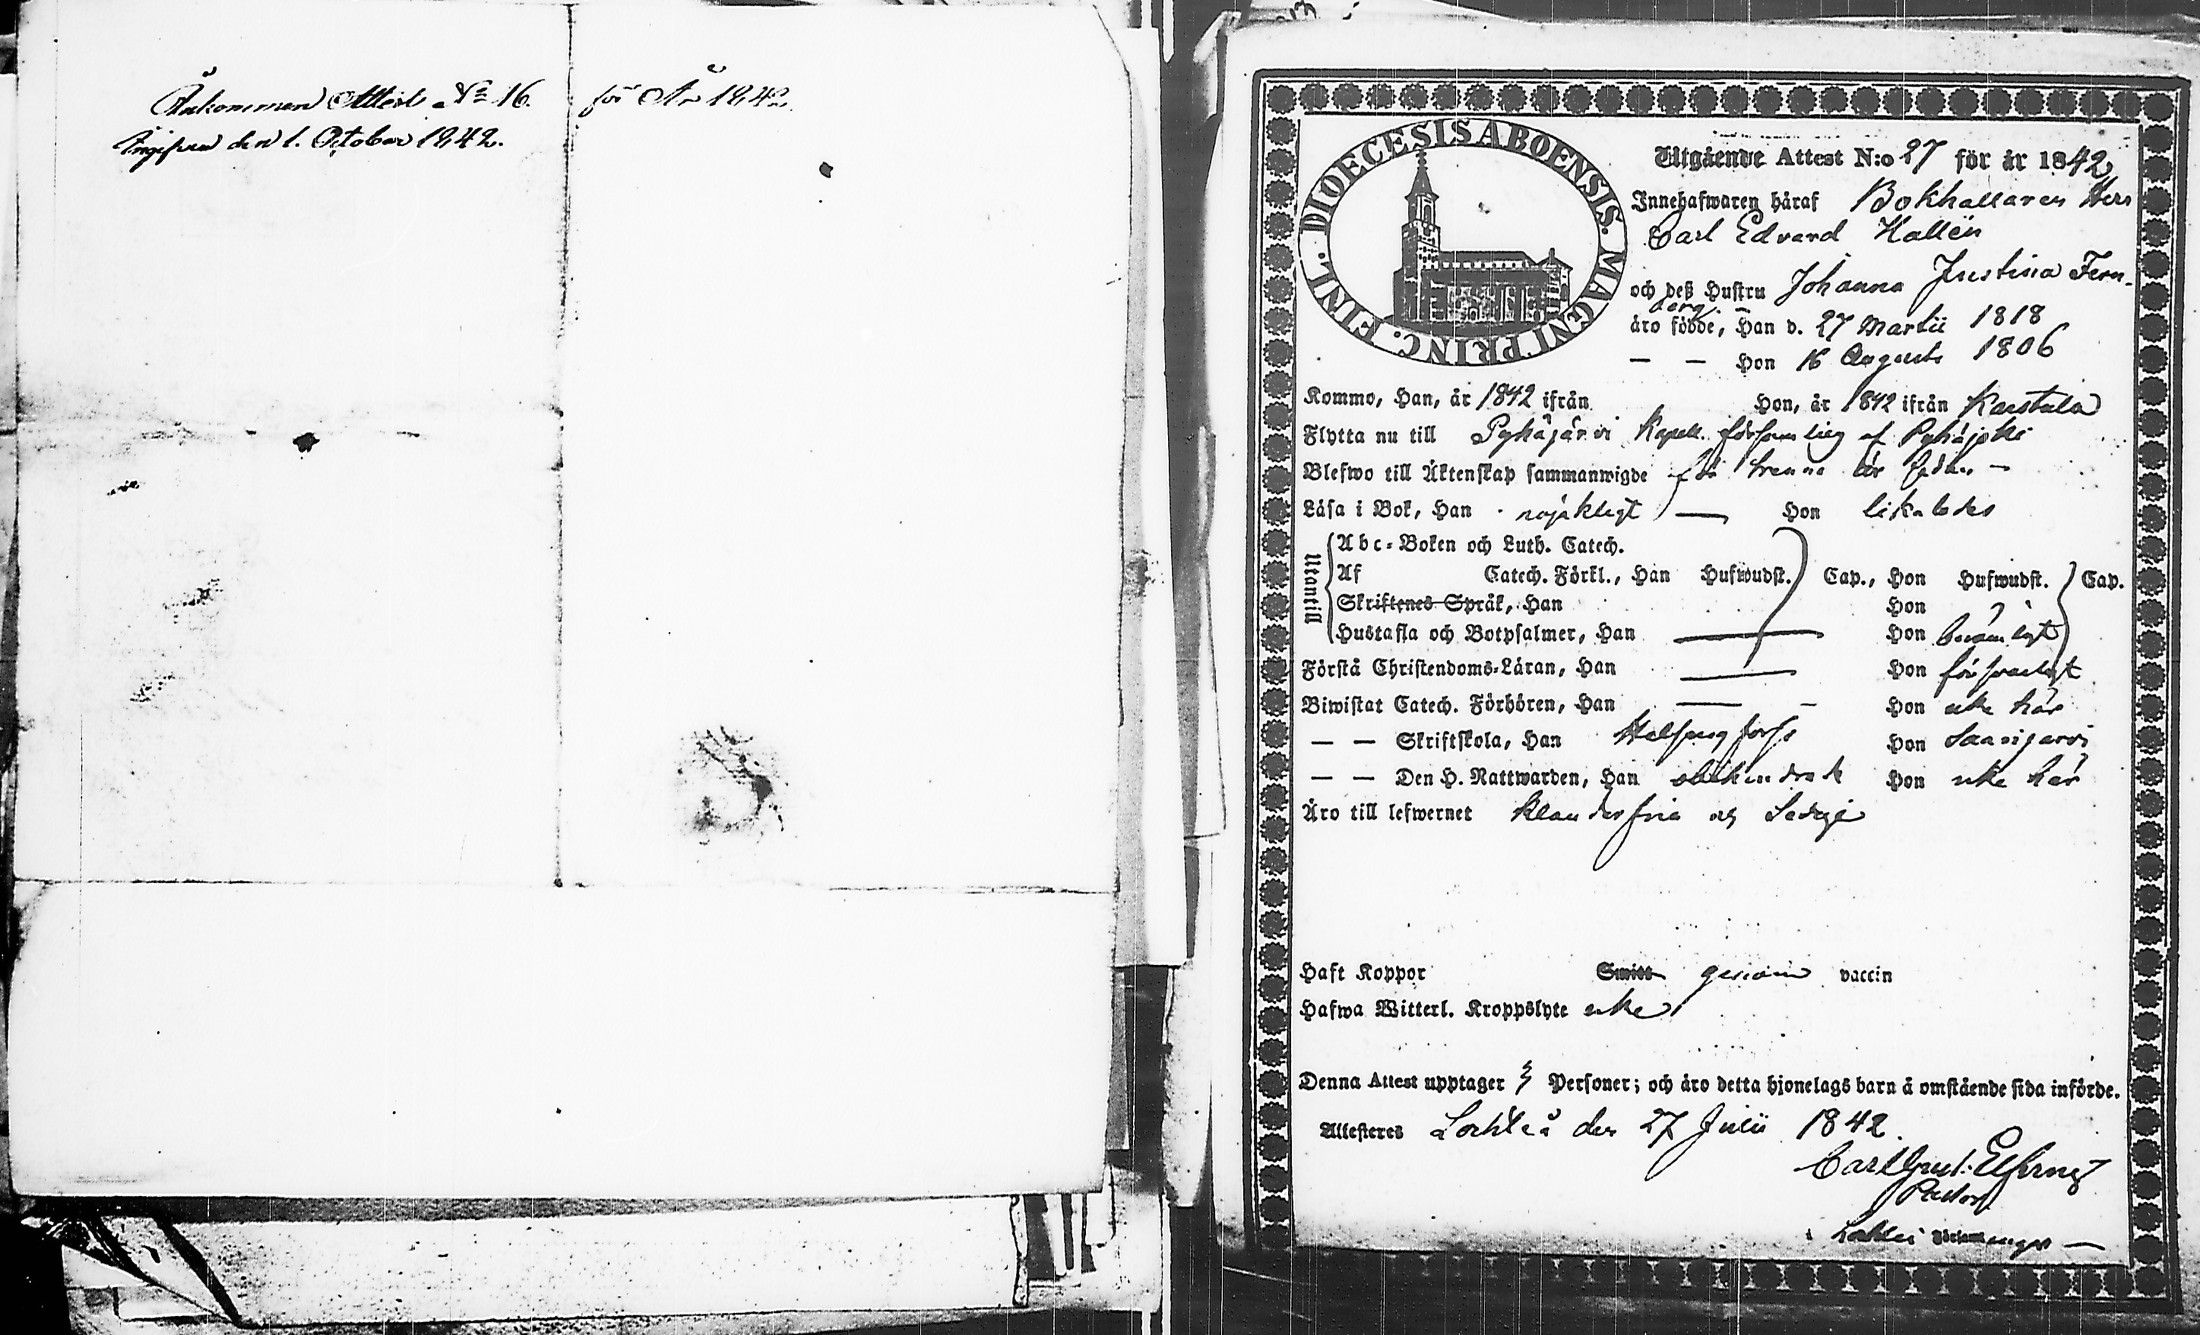 Ankommen Attest No 16. för År 1842.
Ingifven den 1. October 1842.
DIOECESIS ABOENSIS. MAGNI PRINC. FINL.
Utgående Attest N:o 27 för år 1842
Innehafwaren häraf Bokhållaren Herr
Carl Edvard Hallén
och deß Hustru Johanna Justina Fern-
berg
äro födde, Han d. 27 Martii 1818
— — Hon 16 Augusti 1806
Kommo, Han, år 1842 ifrån Hon, år 1842 ifrån Karstula
Flytta nu till Pyhäjärvi Kapell församling af Pyhäjoki
Blefwo till Äktenskap sammanwigde för trenne år sedan —
Läsa i Bok, Han nöjaktigt — Hon likaledes
Utantill
Abc-Boken och Luth. Catech.
Af Catech. Förkl., Han Hufwudst. Cap., Hon Hufwudst. Cap.
Skriftenes Språk, Han Hon
Hustafla och Botpsalmer, Han — Hon berömligt
Förstå Christendoms-Läran, Han — Hon försvarligt
Biwistat Catech. Förhören, Han — — Hon icke här
— — Skriftskola, Han Helsingfors Hon Saarijärvi
— — Den H. Nattwarden, Han obehindrad Hon icke här
Äro till lefwernet klanderfria och Sedige
Haft Koppor Smitt genom vaccin
Hafwa Witterl. Kroppslyte icke
Denna Attest upptager Personer; och äro detta hjonelags barn å omstående sida införde.
Attesteres Lochteå den 27 Julii 1842.
Carl Gust. Elfving
Pastor